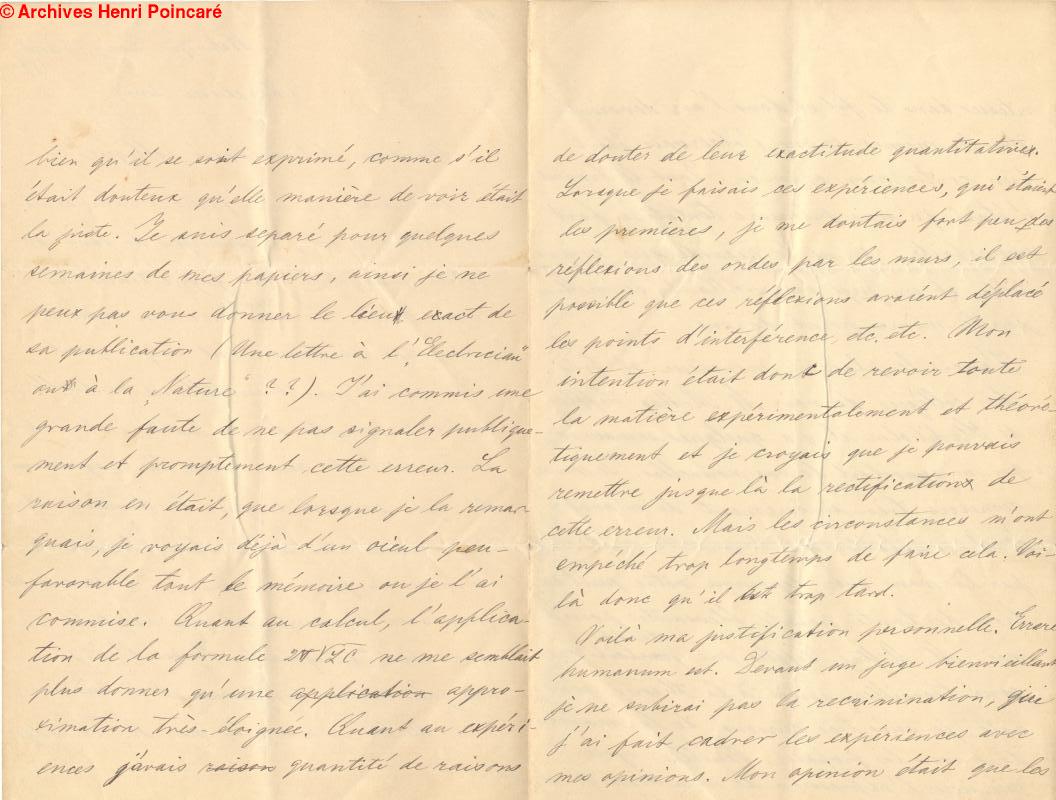 © Archives Henri Poincaré
bien qu'il se soit exprimé, comme s'il
était douteux qu'elle manière de voir était
la juste. Je suis separé pour quelques
semaines de mes papiers, ainsi je ne
peux pas vous donner le lieu exact de
sa publication (Une lettre à l'"Electrician"
ou à la „Nature" ? ?). J'ai commis une
grande faute de ne pas signaler publique-
ment et promptement cette erreur. La
raison en était, que lorsque je la remar-
quais, je voyais déjà d'un oieul peu-
favorable tout le mémoire ou je l'ai
commise. Quant au calcul, l'applica-
tion de la formule 2π√LC ne me semblait
plus donner qu'une application appro-
ximation très-éloignée. Quant au expéri-
ences j'avais raison quantité de raisons
de douter de leur exactitude quantitative.
Lorsque je faisais ces expériences, qui étaient
les premières, je me doutais fort peu des
réflexions des ondes par les murs, il est
possible que ces réflexions avaient déplacé
les points d'interférence, etc. etc. Mon
intention était donc de revoir toute
la matière expérimentalement et théoré-
tiquement et je croyais que je pouvais
remettre jusque là la rectification de
cette erreur. Mais les circonstances m'ont
empéché trop longtemps de faire cela. Voi-
là donc qu'il est trop tard.
Voilà ma justification personnelle. Errare
humanum est. Devant un juge bienvieillant
je ne subirai pas la recrimination, que
j'ai fait cadrer les expériences avec
mes opinions. Mon opinion était que les